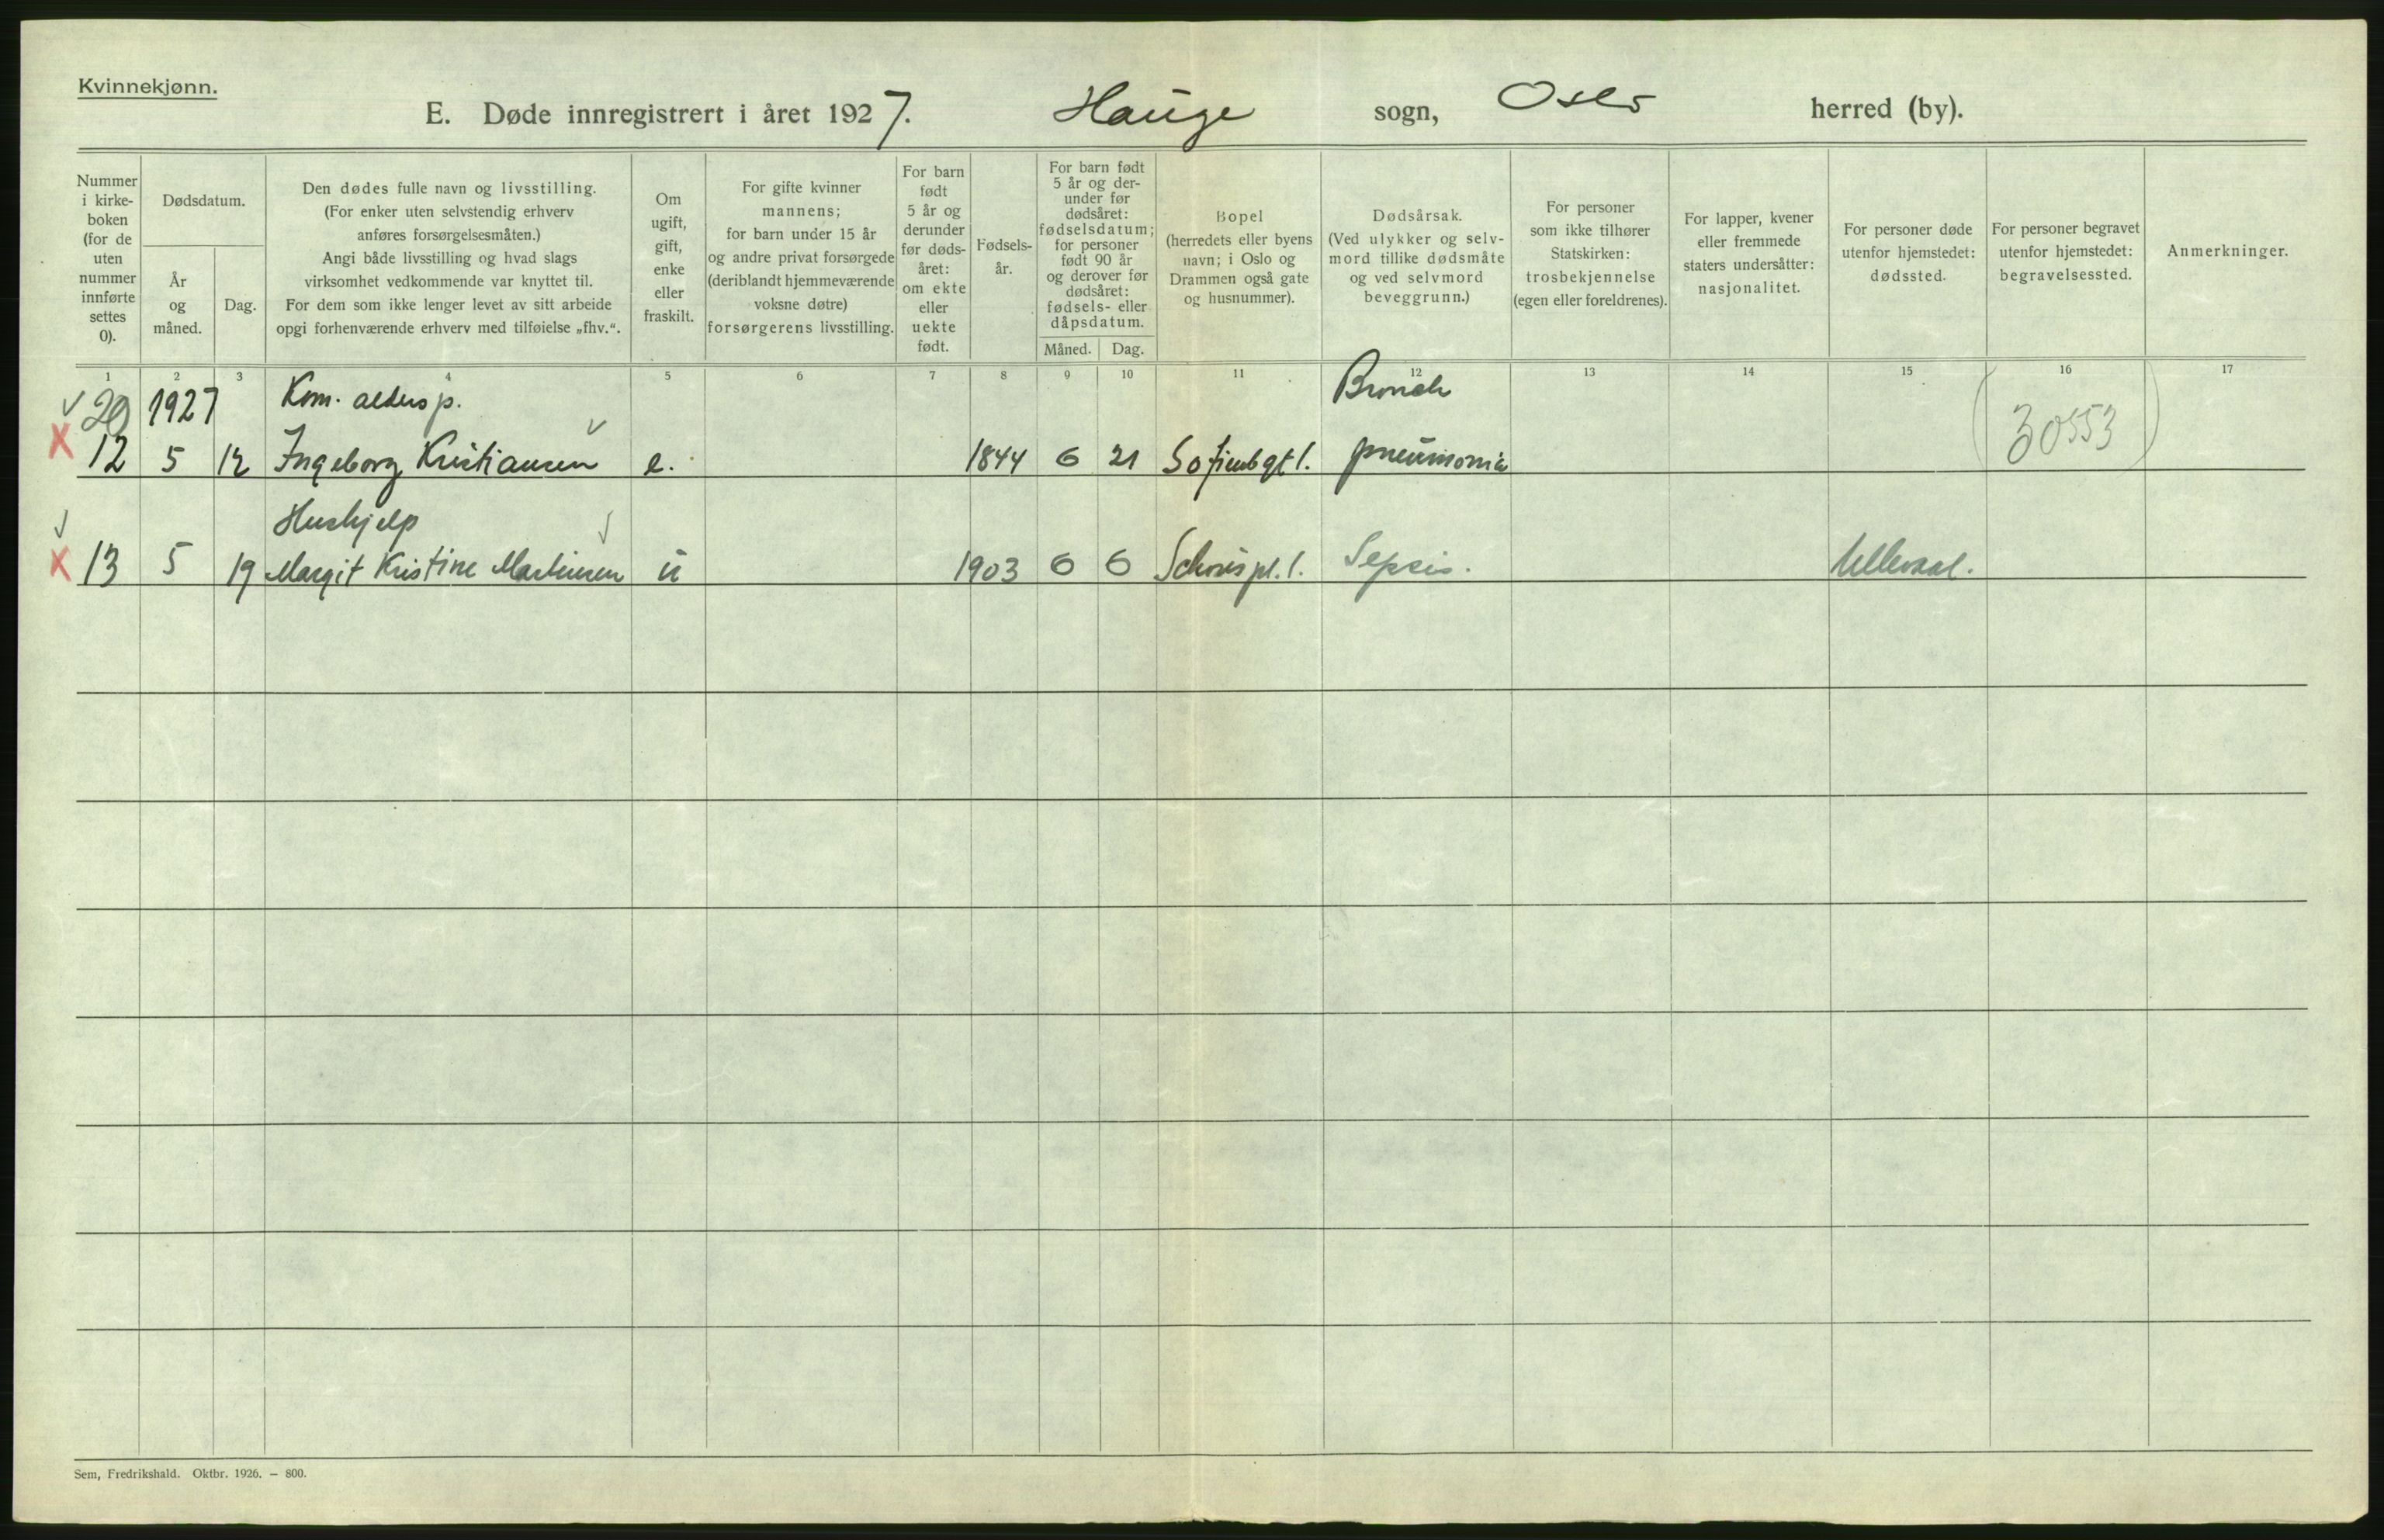 Kvinnekjønn.
E. Døde innregistrert i året 1927. Hauge sogn, Oslo herred (by).
Nummer i kirke- boken (for de uten nummer innførte settes 0).
Dødsdatum.
År og måned.
Dag.
Den dødes fulle navn og livsstilling.
(For enker uten selvstendig erhverv
anføres forsørgelsesmåten.)
Angi både livsstilling og hvad slags
virksomhet vedkommende var knyttet til.
For dem som ikke lenger levet av sitt arbeide
opgi forhenværende erhverv med tilføielse „fhv.“.
Om ugift, gift, enke eller fraskilt.
For gifte kvinner
mannens;
for barn under 15 år
og andre privat forsørgede
(deriblandt hjemmeværende
voksne døtre)
forsørgerens livsstilling.
For barn født 5 år og derunder før døds- året: om ekte eller uekte født.
Fødsels- år.
For barn født
5 år og der-
under før
dødsåret:
fødselsdatum;
for personer
født 90 år
og derover før
dødsåret:
fødsels- eller
dåpsdatum.
Måned. Dag.
Bopel
(herredets eller byens
navn; i Oslo og
Drammen også gate
og husnummer).
Dødsårsak.
(Ved ulykker og selv-
mord tillike dødsmåte
og ved selvmord
beveggrunn.)
For personer
som ikke tilhører
Statskirken:
trosbekjennelse
(egen eller foreldrenes).
For lapper, kvener
eller fremmede
staters undersåtter:
nasjonalitet.
For personer døde
utenfor hjemstedet:
dødssted.
For personer begravet
utenfor hjemstedet:
begravelsessted.
Anmerkninger.
1 2 3 4 5 6 7 8 9 10 11 12 13 14 15 16 17
20 1927 Kom. alders p. Bronch
12 5 12 Ingeborg Kristiansen e. 1844 6 21 Sofienbgt 1. pneumonia (30553)
Hushjelp
13 5 19 Margit Kristine Martinsen ŭ 1903 6 6 Schouspl. 1. Sepsis. Ullevaal.
Sem, Fredrikshald. Oktbr. 1926. – 800.